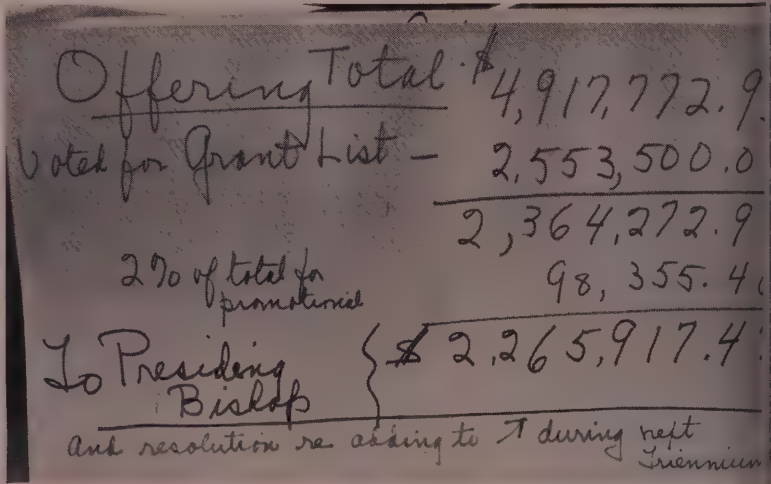 Offering Total $ 4,917,772.9
Voted for Grant List — 2,553,500.0
2,364,272.9
2% of total for promotional 98,355.4
To Presiding Bishop } $ 2,265,917.4
And resolution re adding to ↑ during next Triennium